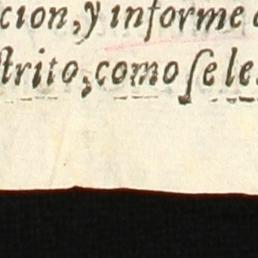 cion, y informe
strito, como ſe le